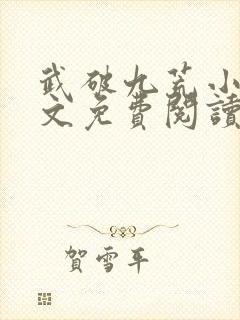 武破九荒小
文免費閱讀
賀雪平